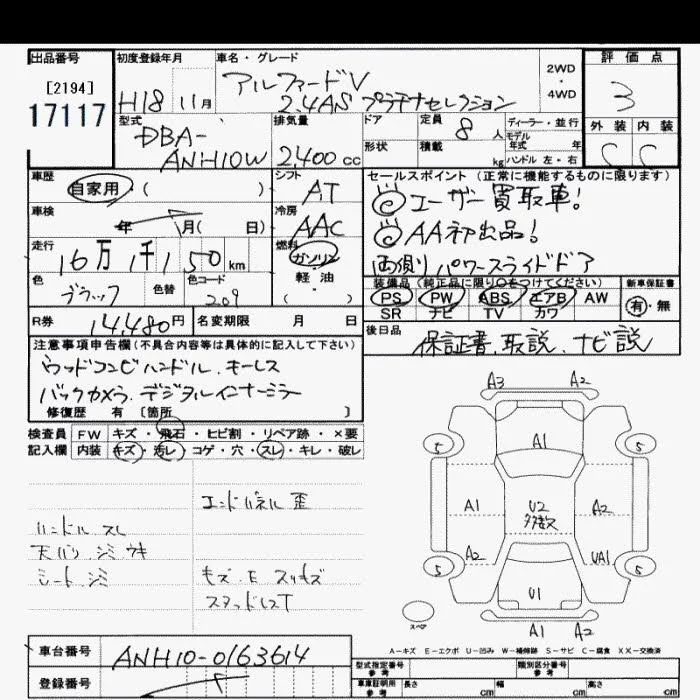 出品番号
[2194]
17117
初度登録年月
H18 11月
車名・グレード
アルファードV
2.4AS プラチナセレクション
2WD
・
4WD
評価点
3
外装 内装
C C
型式
DBA-
ANH10W
排気量
2,400cc
ドア
形状
定員 8人
積載 kg
ディーラー・並行
モデル
年式 年
ハンドル 左・右
車歴
自家用・( )
シフト
AT
車検
年 月( 日)
冷房
AAC
走行
16万1千150km
燃料
ガソリン
・
軽油
・
( )
色
ブラック
色替
色コード
209
セールスポイント (正常に機能するものに限ります)
◎ユーザー買取車!
◎AA初出品!
両側パワースライドドア
装備品(純正品に限り○をつけてください)
PS PW ABS エアB AW
SR ナビ TV カワ
新車保証書
有・無
R券 14,480円
名変期限 月 日
後日品
保証書、取説、ナビ説
注意事項申告欄(不具合内容等は具体的に記入して下さい)
ウッドコンビハンドル、キーレス
バックカメラ、デジタルインナーミラー
修復歴 有 [箇所 ]
検査員
記入欄
FW キズ・飛石・ヒビ割・リペア跡・×要
内装 キズ・汚レ・コゲ・穴・スレ・キレ・破レ
エンドパネル 歪
ハンドル スレ
天バリ シミ ウキ
シート シミ
スタッドレスT
A3 A2
A1
5 5
A1 U2 多数 A2
A2 UA1
5 5
U1
スペア
A1 A2
A-キズ E-エクボ U-凹み W-補修跡 S-サビ C-腐食 XX-交換済
車台番号
ANH10-0163614
登録番号
型式指定番号
参考
類別区分番号
参考
車庫証明用
参考
長さ cm 幅 cm 高さ cm